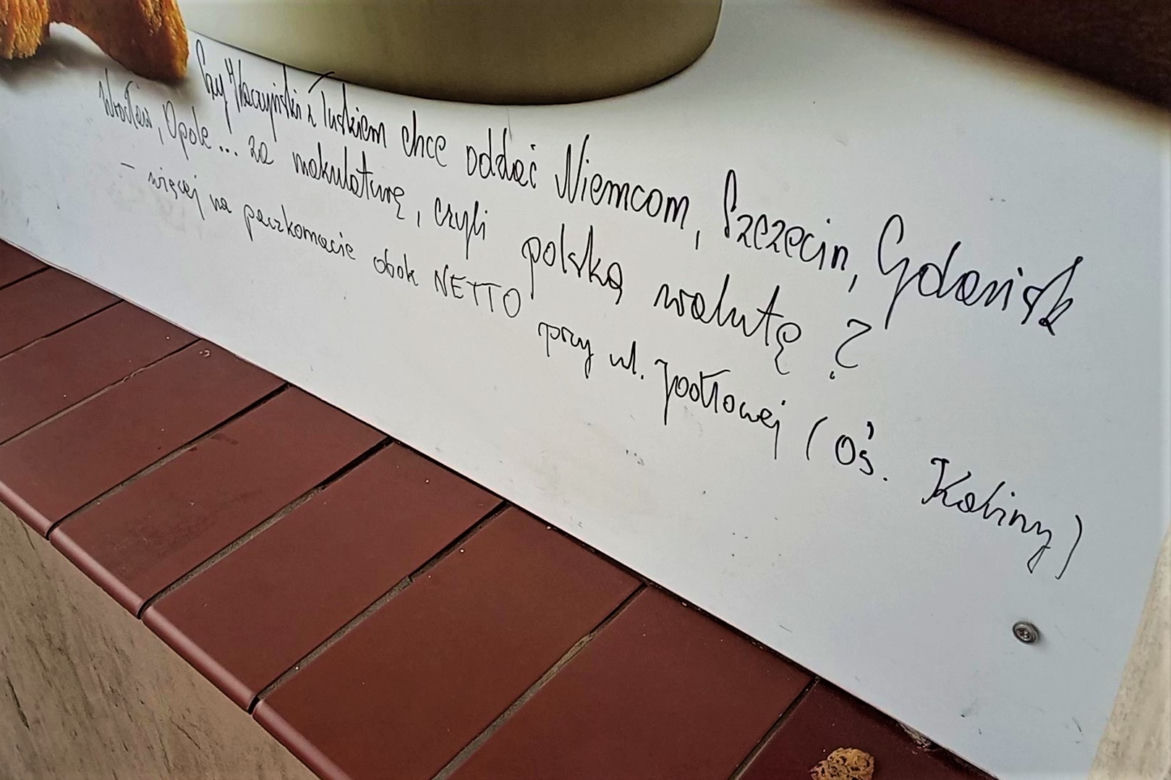 Czy Kaczyński z Tuskiem chce oddać Niemcom, Szczecin, Gdańsk
Wrocław, Opole... za makulaturę, czyli polską walutę?
- więcej na paczkomacie obok NETTO przy ul. Jodłowej (oś. Kaliny)